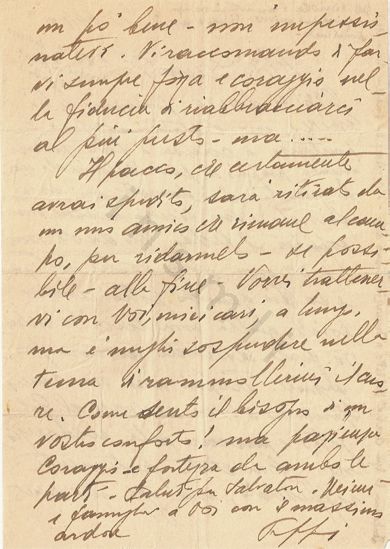 un po' bene - non impessio
natevi. Vi raccomando di far
vi sempre forza e coraggio nel
la fiducia di riabbracciarci
al più presto - ma .....
Il pacco, che certamente
avrai spedito, sarà ritirato da
un mio amico che rimane al cam
po, per ridarmelo - se possi
bile - alla fine. Vorrei trattener
mi con Voi, miei cari, a lungo,
ma è meglio sospendere nella
tema di rammollirmi il cuo
re. Come sento il bisogno di un
vostro conforto! ma pazienza
Coraggio e fortezza da ambo le
parti - Saluti per Salvatore.
e famiglia a Voi con il massimo
ardore